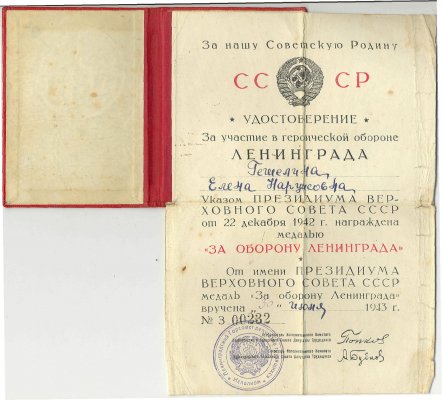 За нашу Советскую Родину
СС СР
УДОСТОВЕРЕНИЕ
За участие в героической обороне
ЛЕНИНГРАДА
Гешелина,
Елена Марковна,
Указом ПРЕЗИДИУМА ВЕР-
ХОВНОГО СОВЕТА СССР
от 22 декабря 1942 г. награждена
медалью
"ЗА ОБОРОНУ ЛЕНИНГРАДА"
От имени ПРЕЗИДИУМА
ВЕРХОВНОГО СОВЕТА СССР
медаль „За оборону Ленинграда"
вручена июня 1943 г.
№ З 00232
Попков